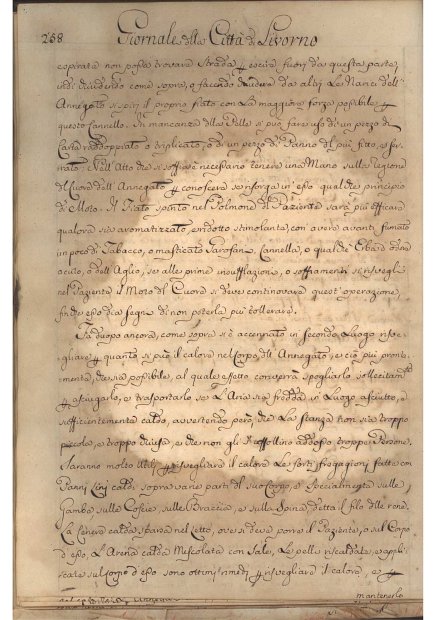 258 Giornale della Città di Livorno
copirata non possa trovare Strada per escire fuori da questa parte,
indi chiudendo come sopra, o facendo chiudere da altri le Narici dell'
Annegato si spiri il proprio fiato con la maggiore forza possibile per
questo Cannello. In mancanza della Pelle si può fare uso di un pezzo di
Carta raddoppiato o triplicato, o di un pezzo di Panno il più fitto, e ser-
rato. Nell'Atto che si soffia è necessario tenere una Mano sulla regione
del Cuore dell'Annegato per conoscere se risorga in esso qualche principio
di Moto. Il Fiato spinto nel Polmone del Paziente sarà più efficace
qualora sia aromatizzato, e ridotto stimolante, con avere avanti fumato
un poco di Tabacco, o masticato Garofani, Cannella, o qualche Erba
aculo, o dell'Aglio, se alle prime insufflazioni, o soffiamenti si risvegli
nel Paziente il Moto del Cuore si deve continovare quest'operazione,
finche esso dia segno di non poterla più tollerare.
Fà d'uopo ancora, come sopra si è accennato in secondo Luogo risve-
gliare per quanto si può il calore nel Corpo dell'Annegato, e ciò più pronta-
mente, che sia possibile, al quale effetto converrà spogliarlo sollecitamte
per asciugarlo, e trasportarlo se l'Aria sia fredda in Luogo asciutto, e
sufficientemente caldo, avvertendo però, che La stanza non sia troppo
piccola, e troppo chiusa, e che non gli s'affollino addosso troppe Persone.
Saranno molto Utili per risvegliare il calore Le forti fregagioni fatte con
Panni Lini caldi sopra varie parti del suo Corpo, e specialmente sulle
Gambe sulle Coscie, sulle Braccia, e sulla Spina, detta il filo delle rene.
La Cenere calda sparsa nel Letto, ove si deve porre il Paziente, o sul Corpo
d'esso, L'Arena calda Mescolata con Sale, Le pelli riscaldate, e appli-
cate sul Corpo d'esso sono ottimi rimedj per risvegliare il calore, e per
mantenerlo